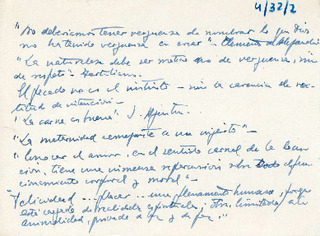 4/32/2
"No deberíamos tener vergüenza de nombrar lo que Dios
no ha tenido vergüenza en crear" - Clemente de Alejandría
"La naturaleza debe ser motivo no de vergüenza, sino
de respeto" - Tertuliano.
El pecado no es el instinto - sino la carencia de rec-
titud de intención -
"La carne es buena" S. Agustín.
"La maternidad semejante a un injerto" -
"Conocer el amor, en el sentido carnal de la
tiene una inmensa repercusión sobre todo el fun-
cionamiento corporal y moral" -
"Felicidad ... placer ... uno plenamente humano, porque
está cargado de realidades espirituales; otro, limitado a la
animalidad, privado de